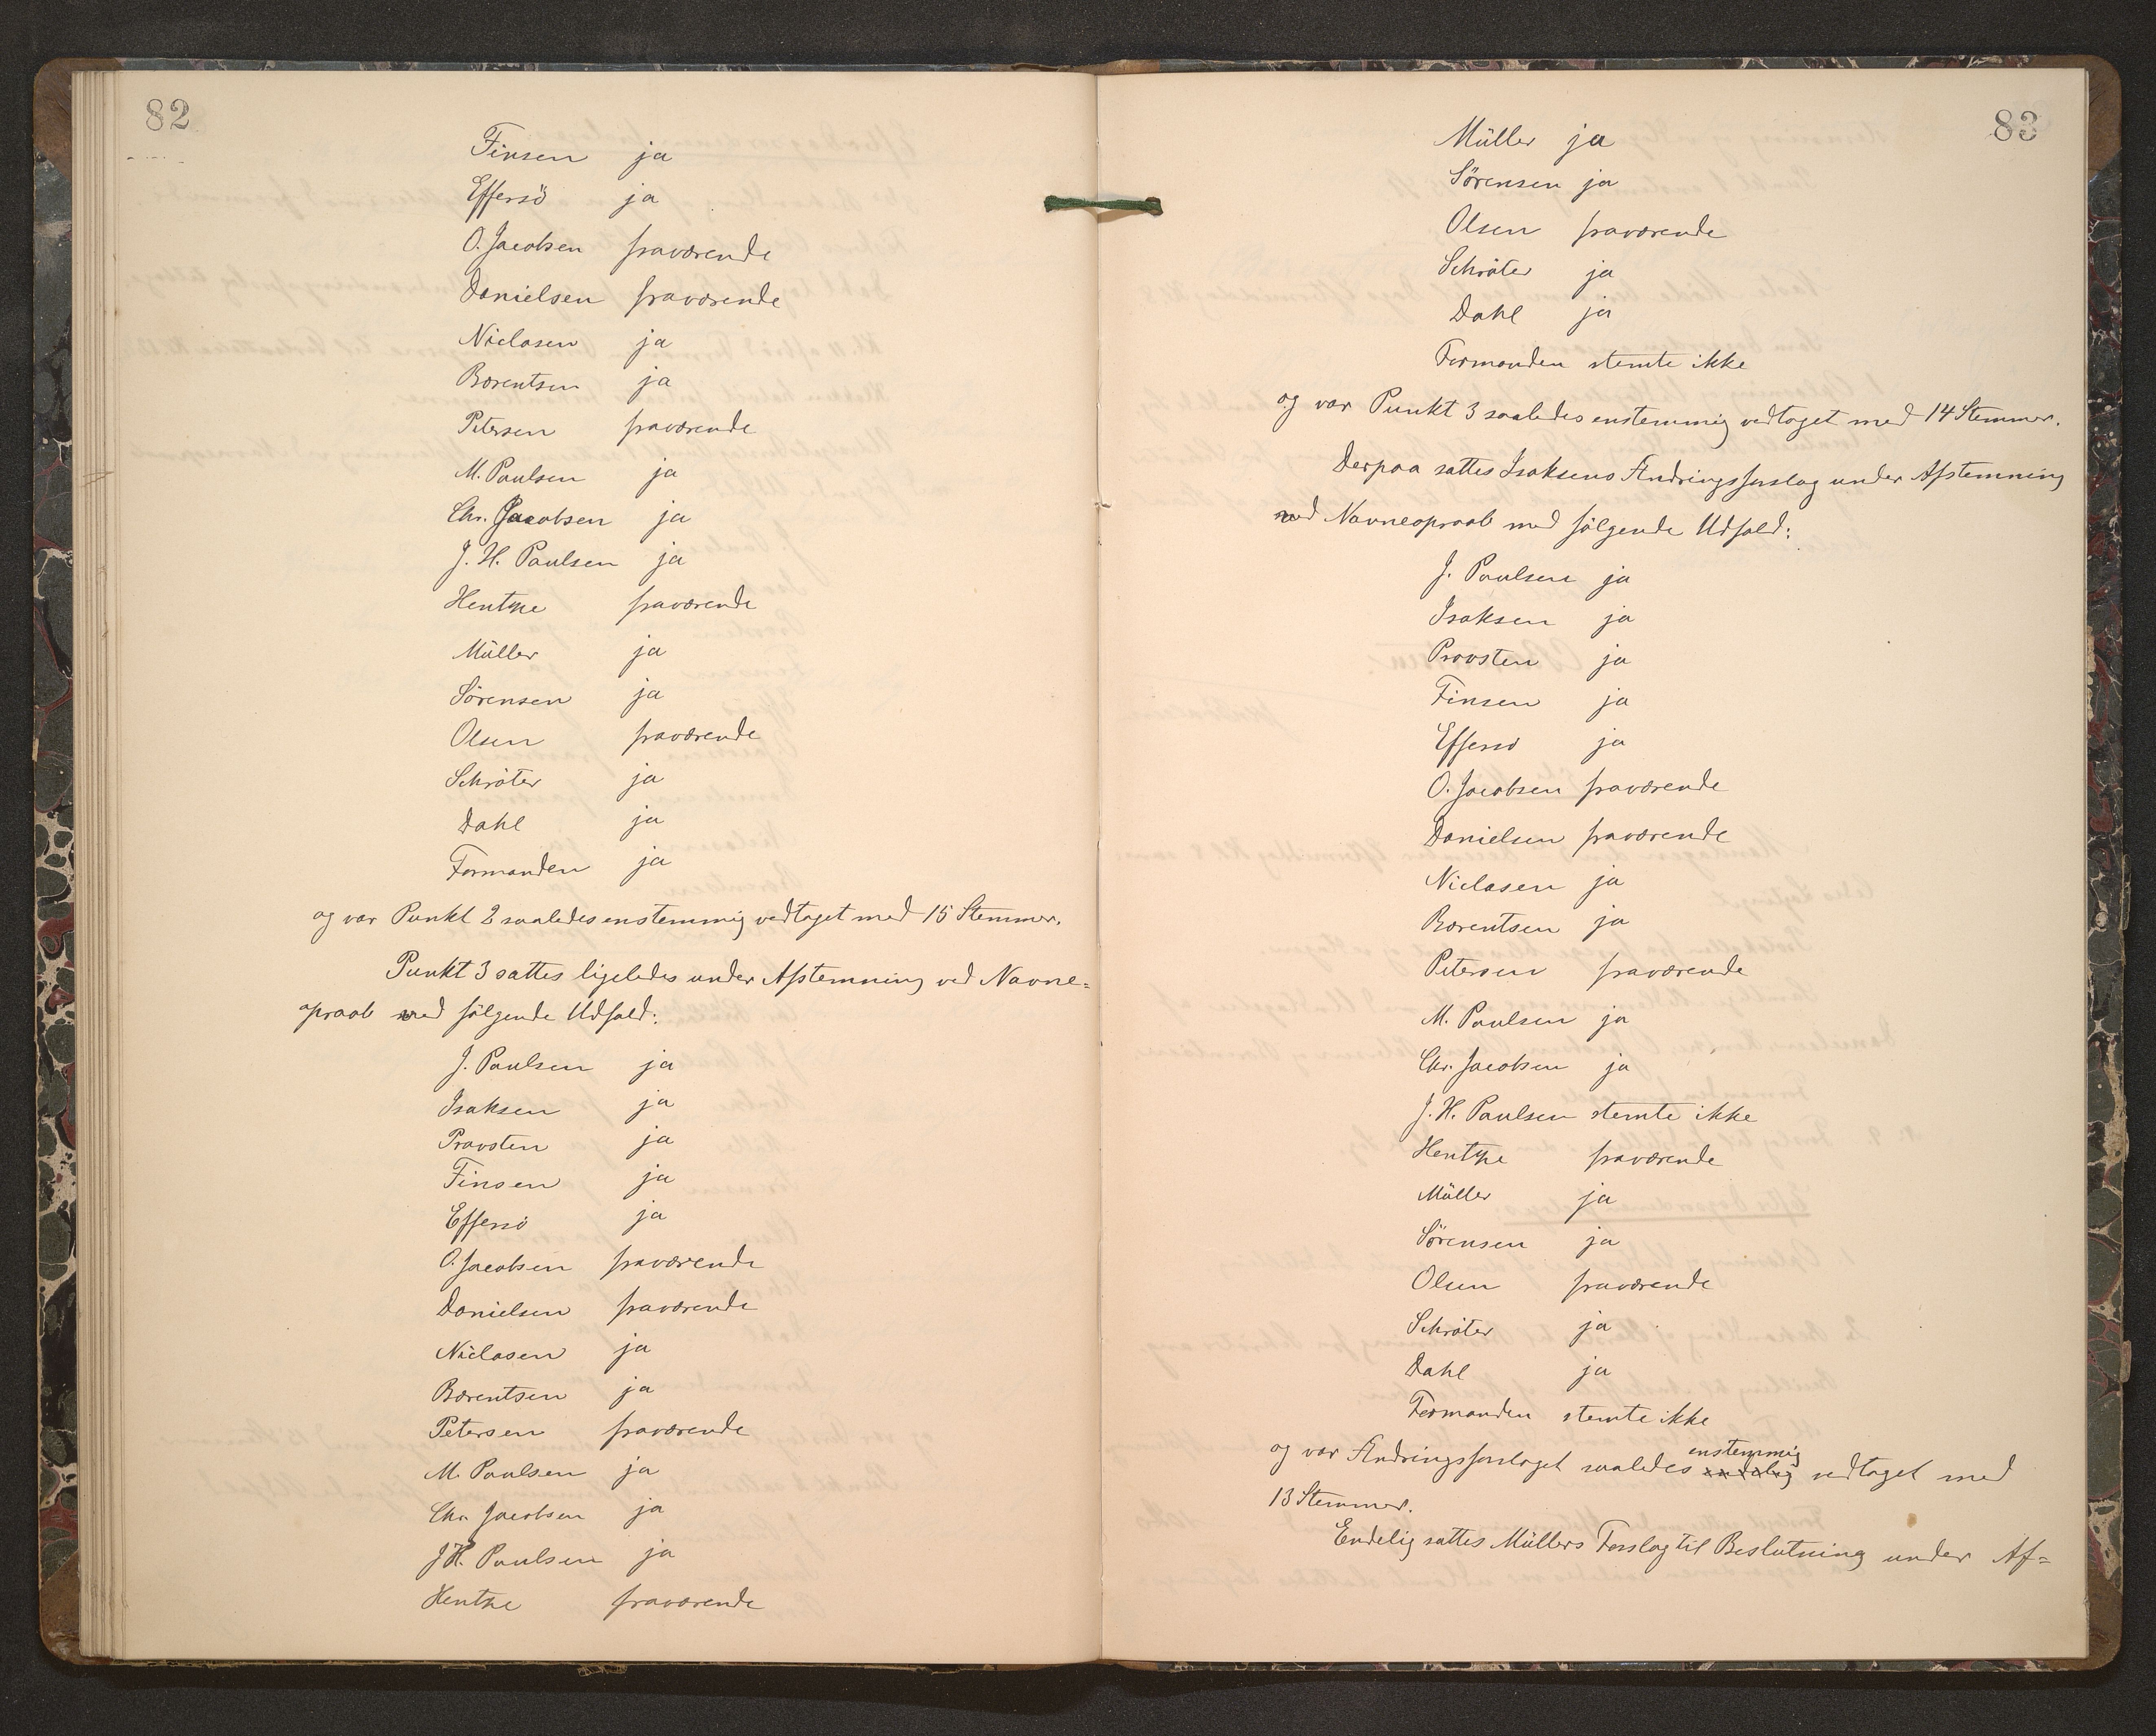 82
Finsen ja
Effersö ja
O. Jacobsen fraværende
Danielsen fraværende
Niclasen ja
Bærentsen ja
Petersen fraværende
M. Paulsen ja
Chr. Jacobsen ja
J. H. Paulsen ja
Hentze fraværende
Müller ja
Sörensen ja
Olsen fraværende
Schröter ja
Dahl ja
Formanden ja
og var Punkt 2 saaledes enstemmig vedtaget med 15 Stemmer.
Punkt 3 sattes ligeledes under Afstemning ved Navne=
opraab med fölgende Udfald:
J. Paulsen ja
Isaksen ja
Provsten ja
Finsen ja
Effersö ja
O. Jacobsen fraværende
Danielsen fraværende
Niclasen ja
Bærentsen ja
Petersen fraværende
M. Paulsen ja
Chr. Jacobsen ja
J H. Paulsen ja
Hentze fraværende
83
Müller ja
Sörensen ja
Olsen fraværende
Schröter ja
Dahl ja
Formanden stemte ikke
og var Punkt 3 saaledes enstemmig vedtaget med 14 Stemmer.
Derpaa sattes Isaksens Ændringsforslag under Afstemning
ved Navneopraab med fölgende Udfald:
J. Paulsen ja
Isaksen ja
Provsten ja
Finsen ja
Effersö ja
O. Jacobsen fraværende
Danielsen fraværende
Niclasen ja
Bærentsen ja
Petersen fraværende
M. Paulsen ja
Chr. Jacobsen ja
J. H. Paulsen stemte ikke
Hentze fraværende
Müller ja
Sörensen ja
Olsen fraværende
Schröter ja
Dahl ja
Formanden stemte ikke
og var Ændringsforslaget saaledes enstemmig vedtaget med
13 Stemmer.
Endelig sattes Müllers Forslag til Beslutning under Af=